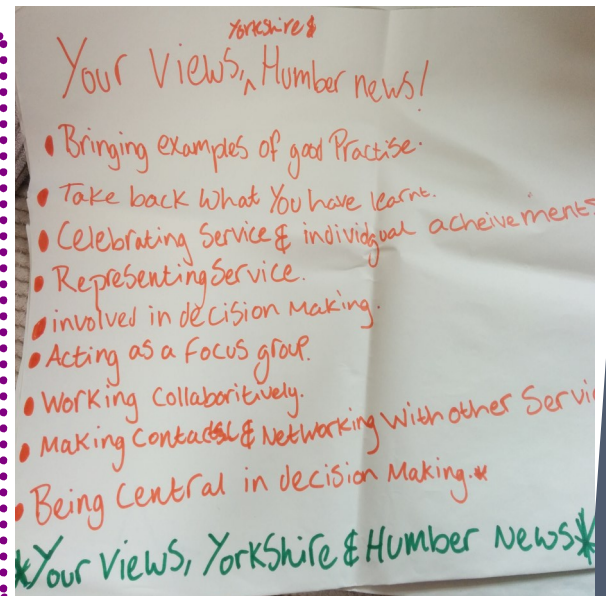 Yorkshire &
Your Views, ^ Humber news!
• Bringing examples of good Practise.
• Take back what You have learnt.
• Celebrating Service & individgual acheivements
• Representing Service.
• involved in decision Making.
• Acting as a Focus group.
• Working Collaboritively.
• Making Contacts & Networking with other Servi
• Being Central in decision Making.*
*Your Views, Yorkshire & Humber News*